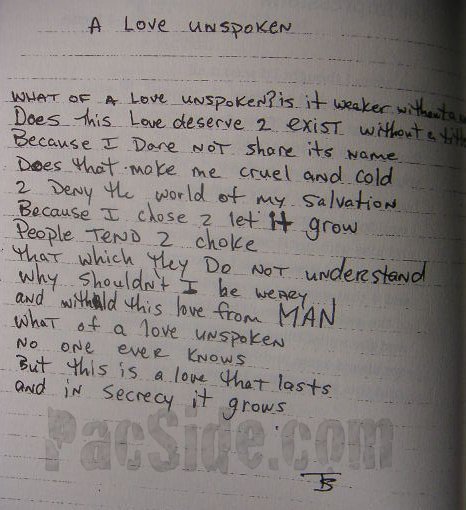 A Love UNSPOKEN
WHAT OF A LOVE UNSPOKEN? is it weaker without a
Does this Love deserve 2 exist without a
Because I Dare NOT share its NAME
Does that make me cruel and cold
2 Deny the world of my SALVATION
Because I chose 2 let it grow
People TEND 2 choke
that which they Do NOT understand
why shouldn't I be WEARY
and withold this love from MAN
what of a love UNSPOKEN
NO ONE ever KNOWS
But this is a love that lasts
and in secrecy it grows
PacSide.com